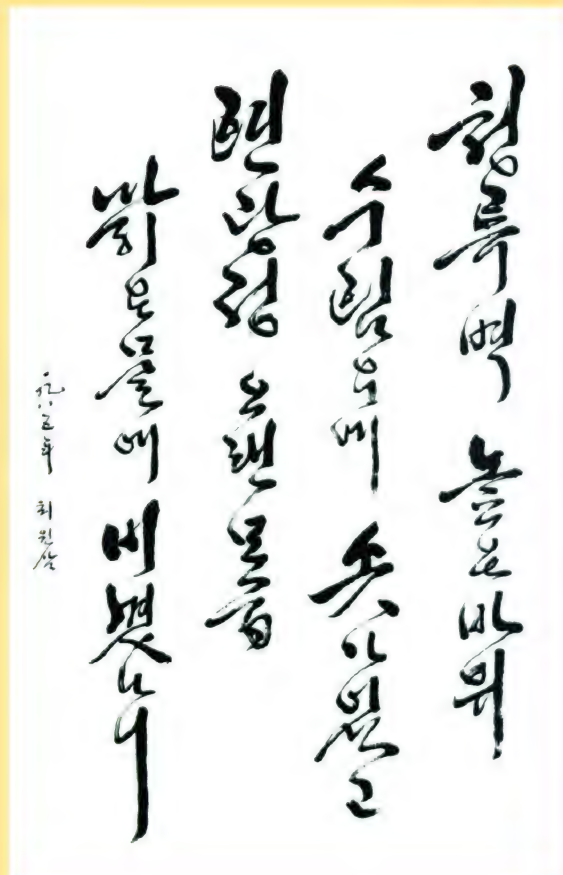 청류벽 높은바위
수림우에 솟아있고
련광정 오랜모습
맑은물에 비꼈나니
一九八五年 최원삼